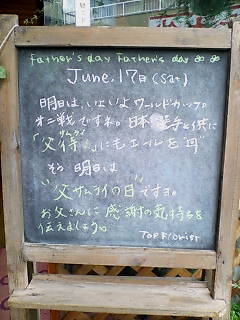 Father's day Father's day
June. 17日 (Sat)
明日は、いよいよワールドカップ。
オ二戦ですネ。日本選手と供に
「父侍」にもエールを
そう 明日は
"父サムライの日"ですョ。
お父さんに感謝の気持ちを
伝えましょう。
TOP Florist